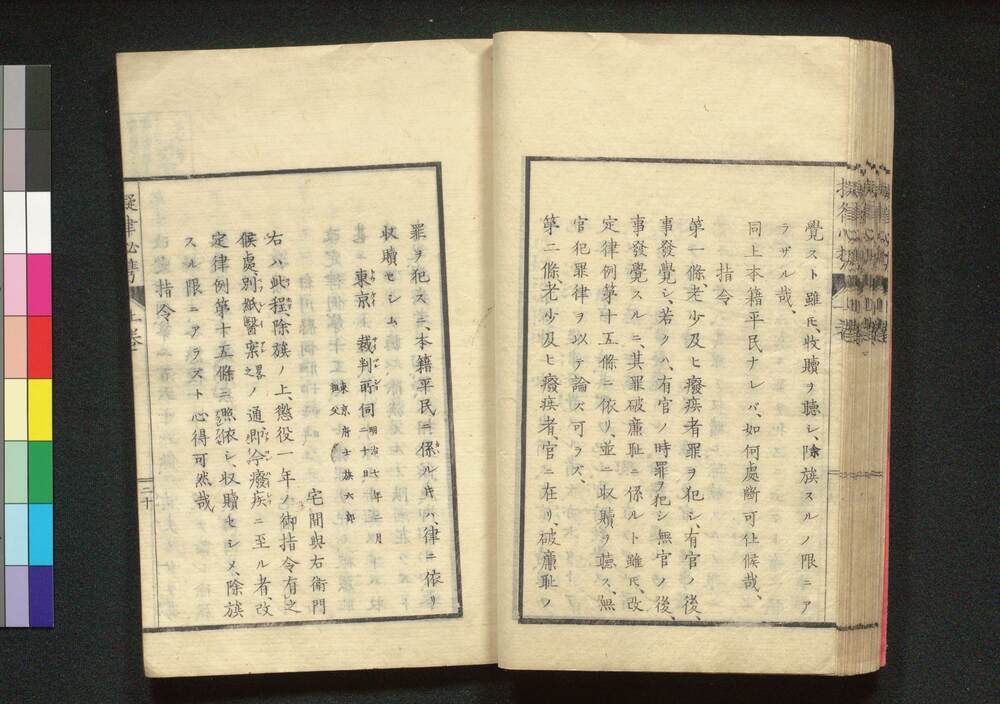 覺スト雖𪜈、收贖ヲ聽シ、除族スルノ限ニア
ラザル哉、
同上本籍平民ナレバ、如何處斷可仕候哉、
指令
第一條、老少及ヒ癈疾者罪ヲ犯シ、有官ノ後、
事發覺シ、若クハ、有官ノ時罪ヲ犯シ無官ノ後、
事發覺スルニ、其罪破廉恥ニ係ルト雖𪜈、改
定律例第十五條ニ依リ、並ニ收贖ヲ聽ス、無
官犯罪律ヲ以テ論ズ可ラズ、
第二條老少及ヒ癈疾者、官ニ在リ、破廉恥ノ
罪ヲ犯スニ、本籍平民ニ係ルキハ、律ニ依リ
收贖セシム
東京裁判所伺 明治六年二月二十日
東京府士族六郎
祖父
宅間與右衛門
右ハ此程、除族ノ上、懲役一年ノ御指令有之
候處、別紙醫案畧之ノ通、即今癈疾ニ至ル者、改
定律例第十五條ニ照依シ、収贖セシメ、除族
スル限ニアラスト心得可然哉
指令
擬律必携
上卷
二十